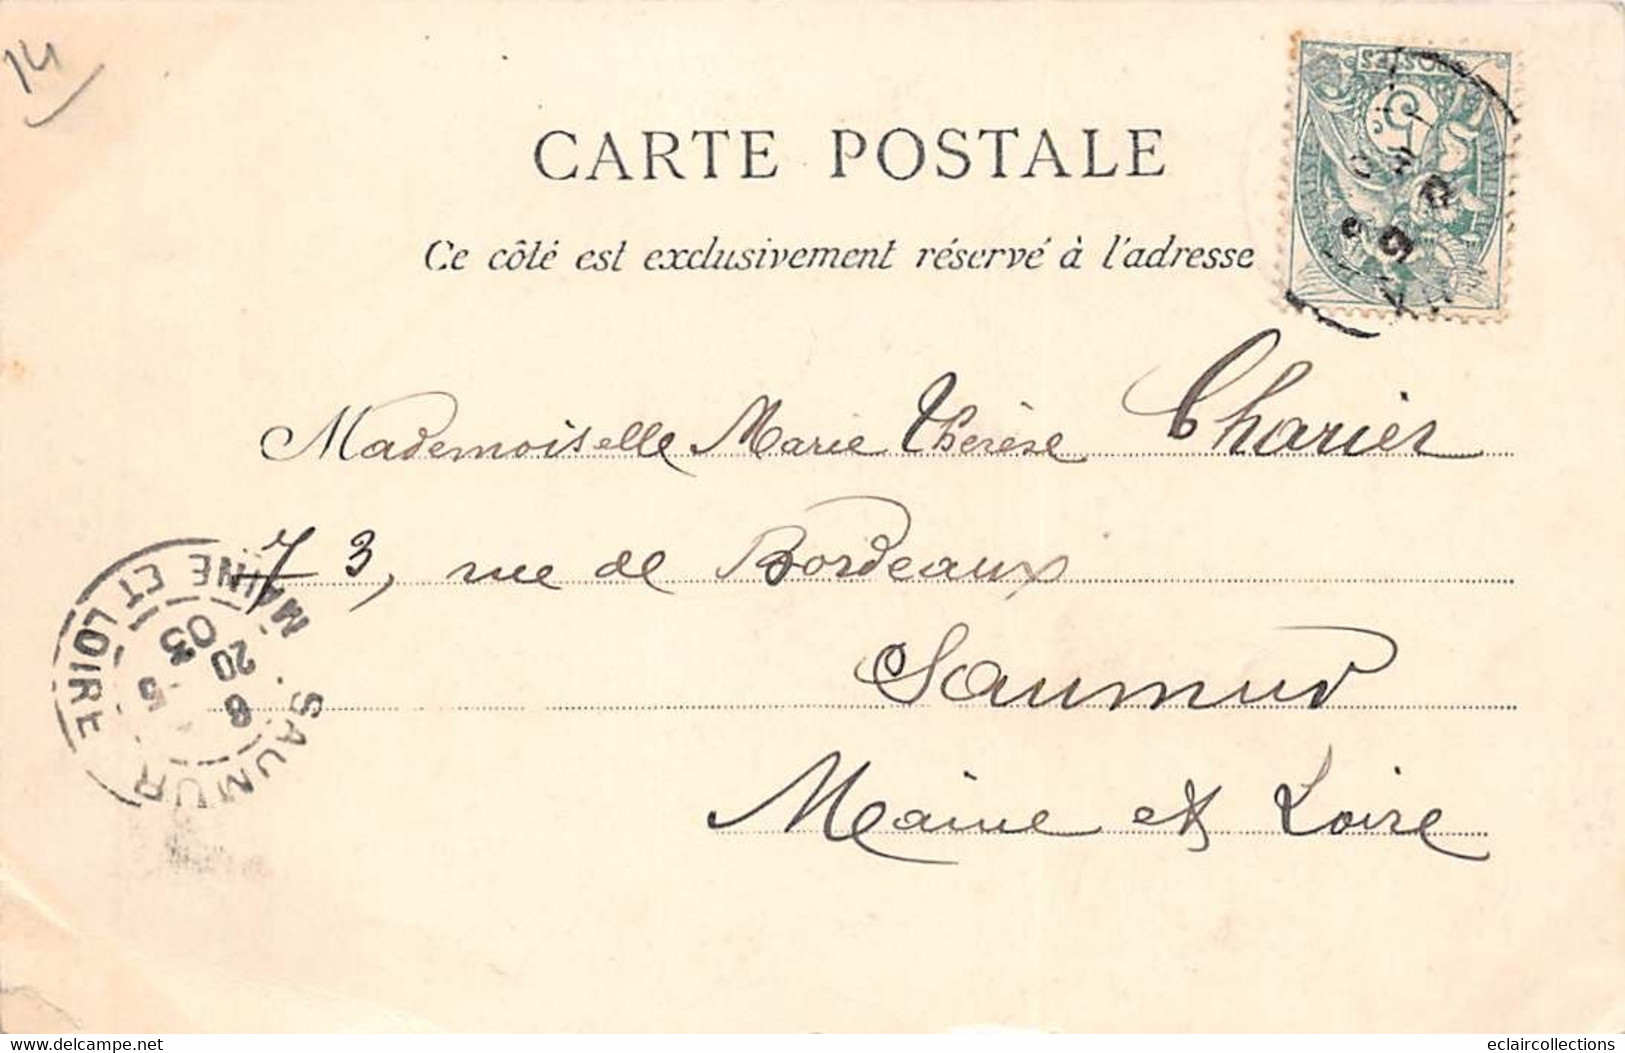 14
CARTE POSTALE
Ce côté est exclusivement réservé à l'adresse
POSTES
5
Mademoiselle Marie Thérèse Charier
73, rue de Bordeaux
Saumur
Maine et Loire
SAUMUR
MAINE ET LOIRE
6
20
03
eclaircollections